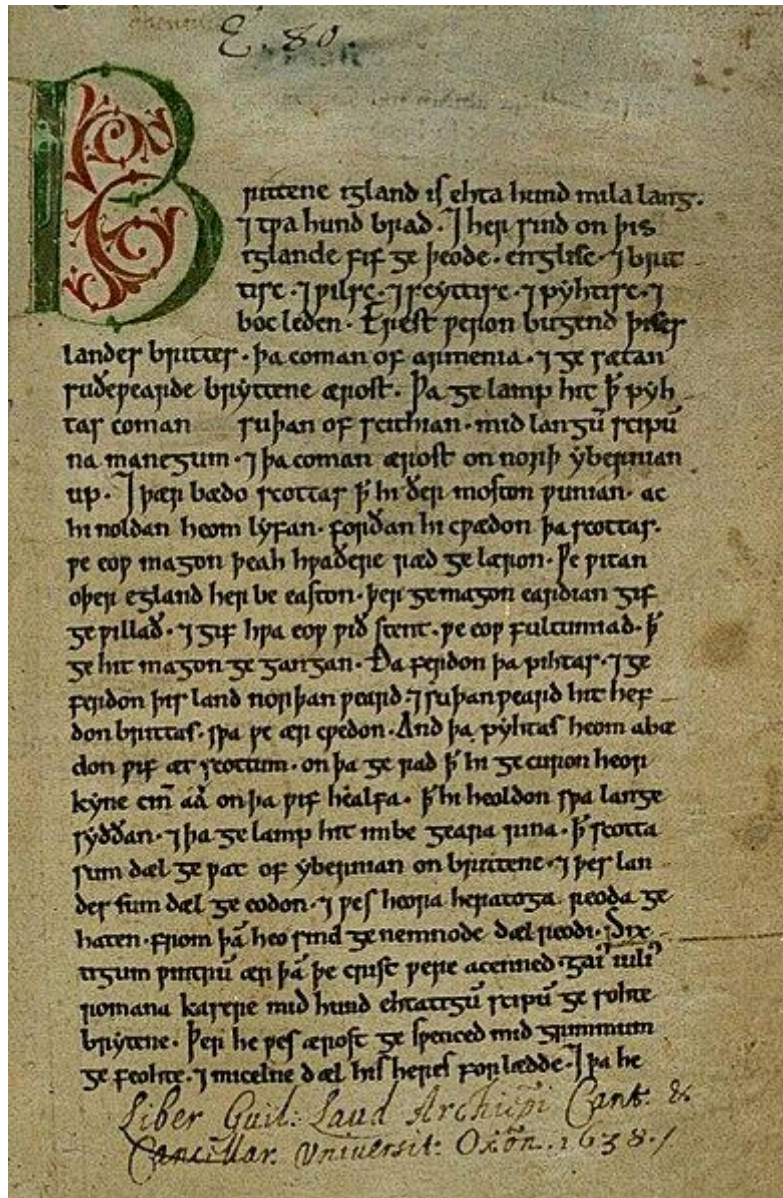 E. 80.
Brittene igland is ehta hund mila lang.
⁊ tƿa hund brad. ⁊ her sind on þis
iglande fif ge þeode. englisc. ⁊ brit
tisc. ⁊ ƿilsc. ⁊ scyttisc. ⁊ pyhtisc. ⁊
boc leden. Erest ƿeron bugend þises
landes brittes. þa coman of armenia. ⁊ ge sætan
suðeƿearde bryttene ærost. Þa ge lamp hit ꝥ pyh
tas coman suþan of scithian. mid langū scipū
na manegum. ⁊ þa coman ærost on norþ ybernian
up. ⁊ þær bædo scottas ꝥ hi ðer moston ƿunian. ac
hi noldan heom lyfan. forðan hi cƿædon þa scottas.
ƿe eoƿ magon þeah hƿaðere ræd ge læron. Ƿe ƿitan
oþer egland her be easton. þer ge magon eardian gif
ge ƿillað. ⁊ gif hƿa eoƿ ƿið stent. ƿe eoƿ fultumiað. ꝥ
ge hit magon ge gangan. Ða ferdon þa pihtas. ⁊ ge
ferdon þis land norþan ƿeard. ⁊ suþan ƿeard hit hef
don brittas. sƿa ƿe ær cƿedon. And þa pyhtas heom abæ
don ƿif æt scottum. on þa ge rad ꝥ hi ge curon heor
kyne cīn aa on þa ƿif healfa. ꝥ hi heoldon sƿa lange
syððan. ⁊ þa ge lamp hit imbe geara rina. ꝥ scotta
sum dæl ge ƿat of ybernian on brittene. ⁊ þes lan
des sum dæl ge eodon. ⁊ ƿes heora heratoga reoda ge
haten. from þā heo sind ge nemnode dæl reodi. Six
tigum ƿintrū ær þā þe crist ƿere acenned. gaiꝰ iuliꝰ
romana kasere mid hund ehtatigū scipū ge sohte
brytene. Þer he ƿes ærost ge sƿenced mid grimmum
ge feohte. ⁊ micelne dæl his heres for lædde. ⁊ þa he
Liber Guil: Laud Archiēpi Cant. &
Cancillar. Vniuersit: Oxōn. 1638.